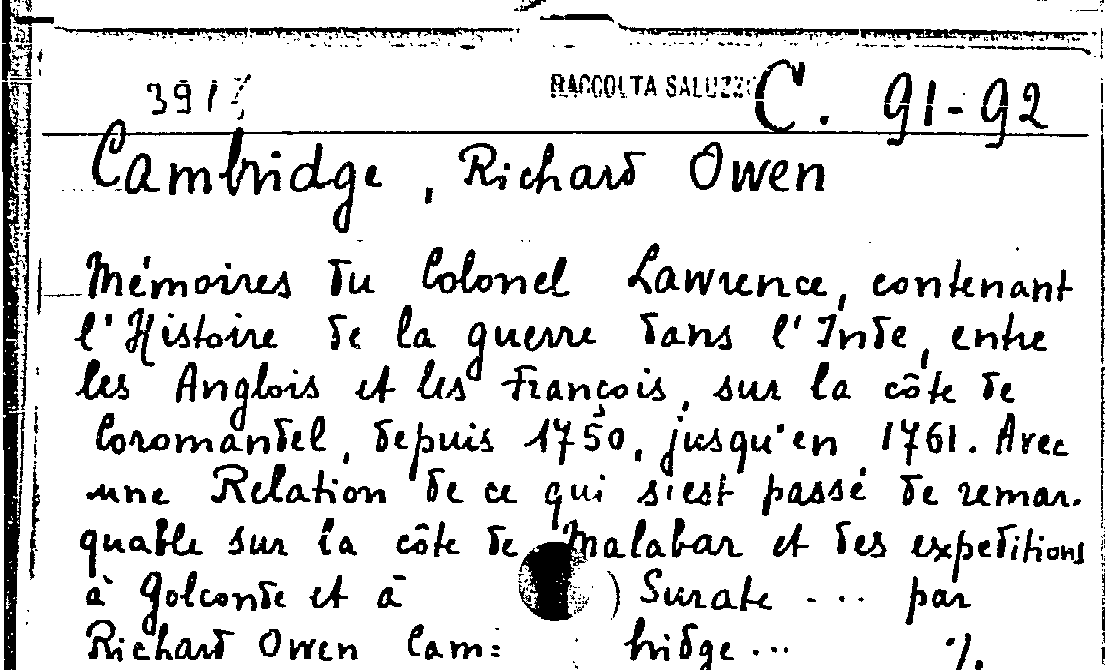 3917
RACCOLTA SALUZZO C. 91-92
Cambridge, Richard Owen
Mémoires du Colonel Lawrence, contenant
l'Histoire de la guerre dans l'Inde, entre
les Anglois et les François, sur la côte de
Coromandel, depuis 1750, jusqu'en 1761. Avec
une Relation de ce qui s'est passé de remar-
quable sur la côte de Malabar et des expeditions
à Golconde et à Surate ... par
Richard Owen Cam= bridge ... ./.